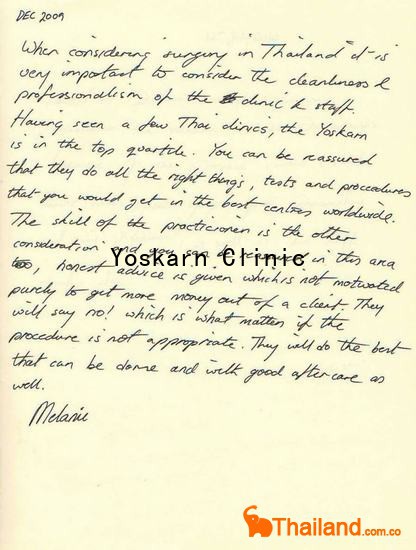 DEC 2009
When considering surgery in Thailand it is
very important to consider the cleanliness &
professionalism of the clinic & staff.
Having seen a few Thai clinics, the Yoskarn
is in the top quartile. You can be reassured
that they do all the right things, tests and proceedures
that you would get in the best centres worldwide.
The skill of the practicioner is the other
consideration and you can be in this area
too, honest advice is given which is not motivated
purely to get more money out of a client. They
will say no! which is what matters if the
procedure is not appropriate. They will do the best
that can be done and with good aftercare as
well.
Melanie
Yoskarn Clinic
Thailand.com.co